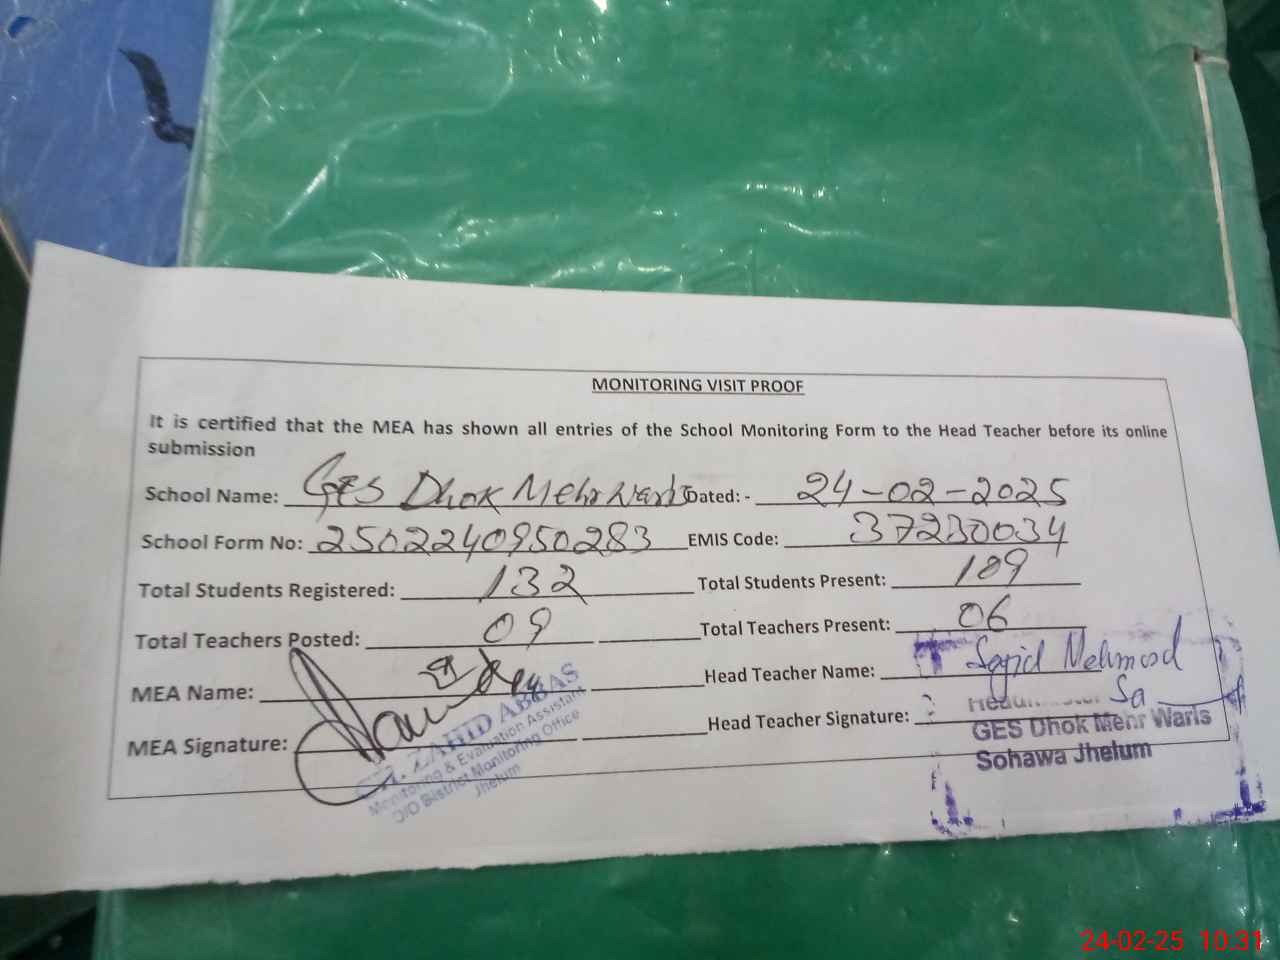 MONITORING VISIT PROOF
It is certified that the MEA has shown all entries of the School Monitoring Form to the Head Teacher before its online
submission
School Name: GES Dhok Mehr Waris Dated: - 24-02-2025
School Form No: 2502240950283 EMIS Code: 37230034
Total Students Registered: 132 Total Students Present: 109
Total Teachers Posted: 09 Total Teachers Present: 06
MEA Name: Head Teacher Name: Sajid Mehmood
MEA Signature: Head Teacher Signature:
ZAHID ABBAS
Monitoring & Evaluation Assistant
O/O District Monitoring Office
Jhelum
GES Dhok Mehr Waris
Sohawa Jhelum
24-02-25 10:31